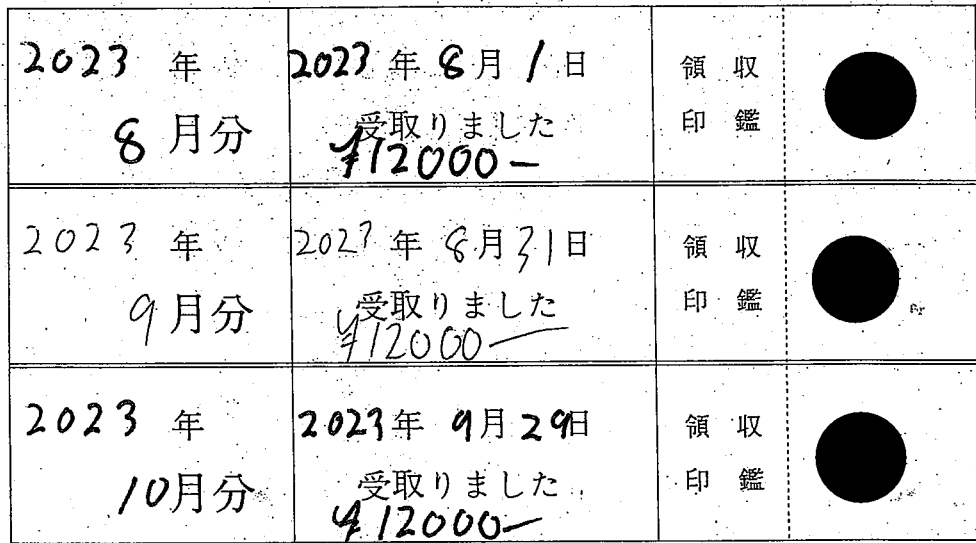 2023 年
8 月分
2023 年 8 月 1 日
受取りました
¥12000-
領 収
印 鑑
2023 年
9 月分
2023 年 8 月 31 日
受取りました
¥12000-
領 収
印 鑑
2023 年
10 月分
2023 年 9 月 29 日
受取りました
¥12000-
領 収
印 鑑